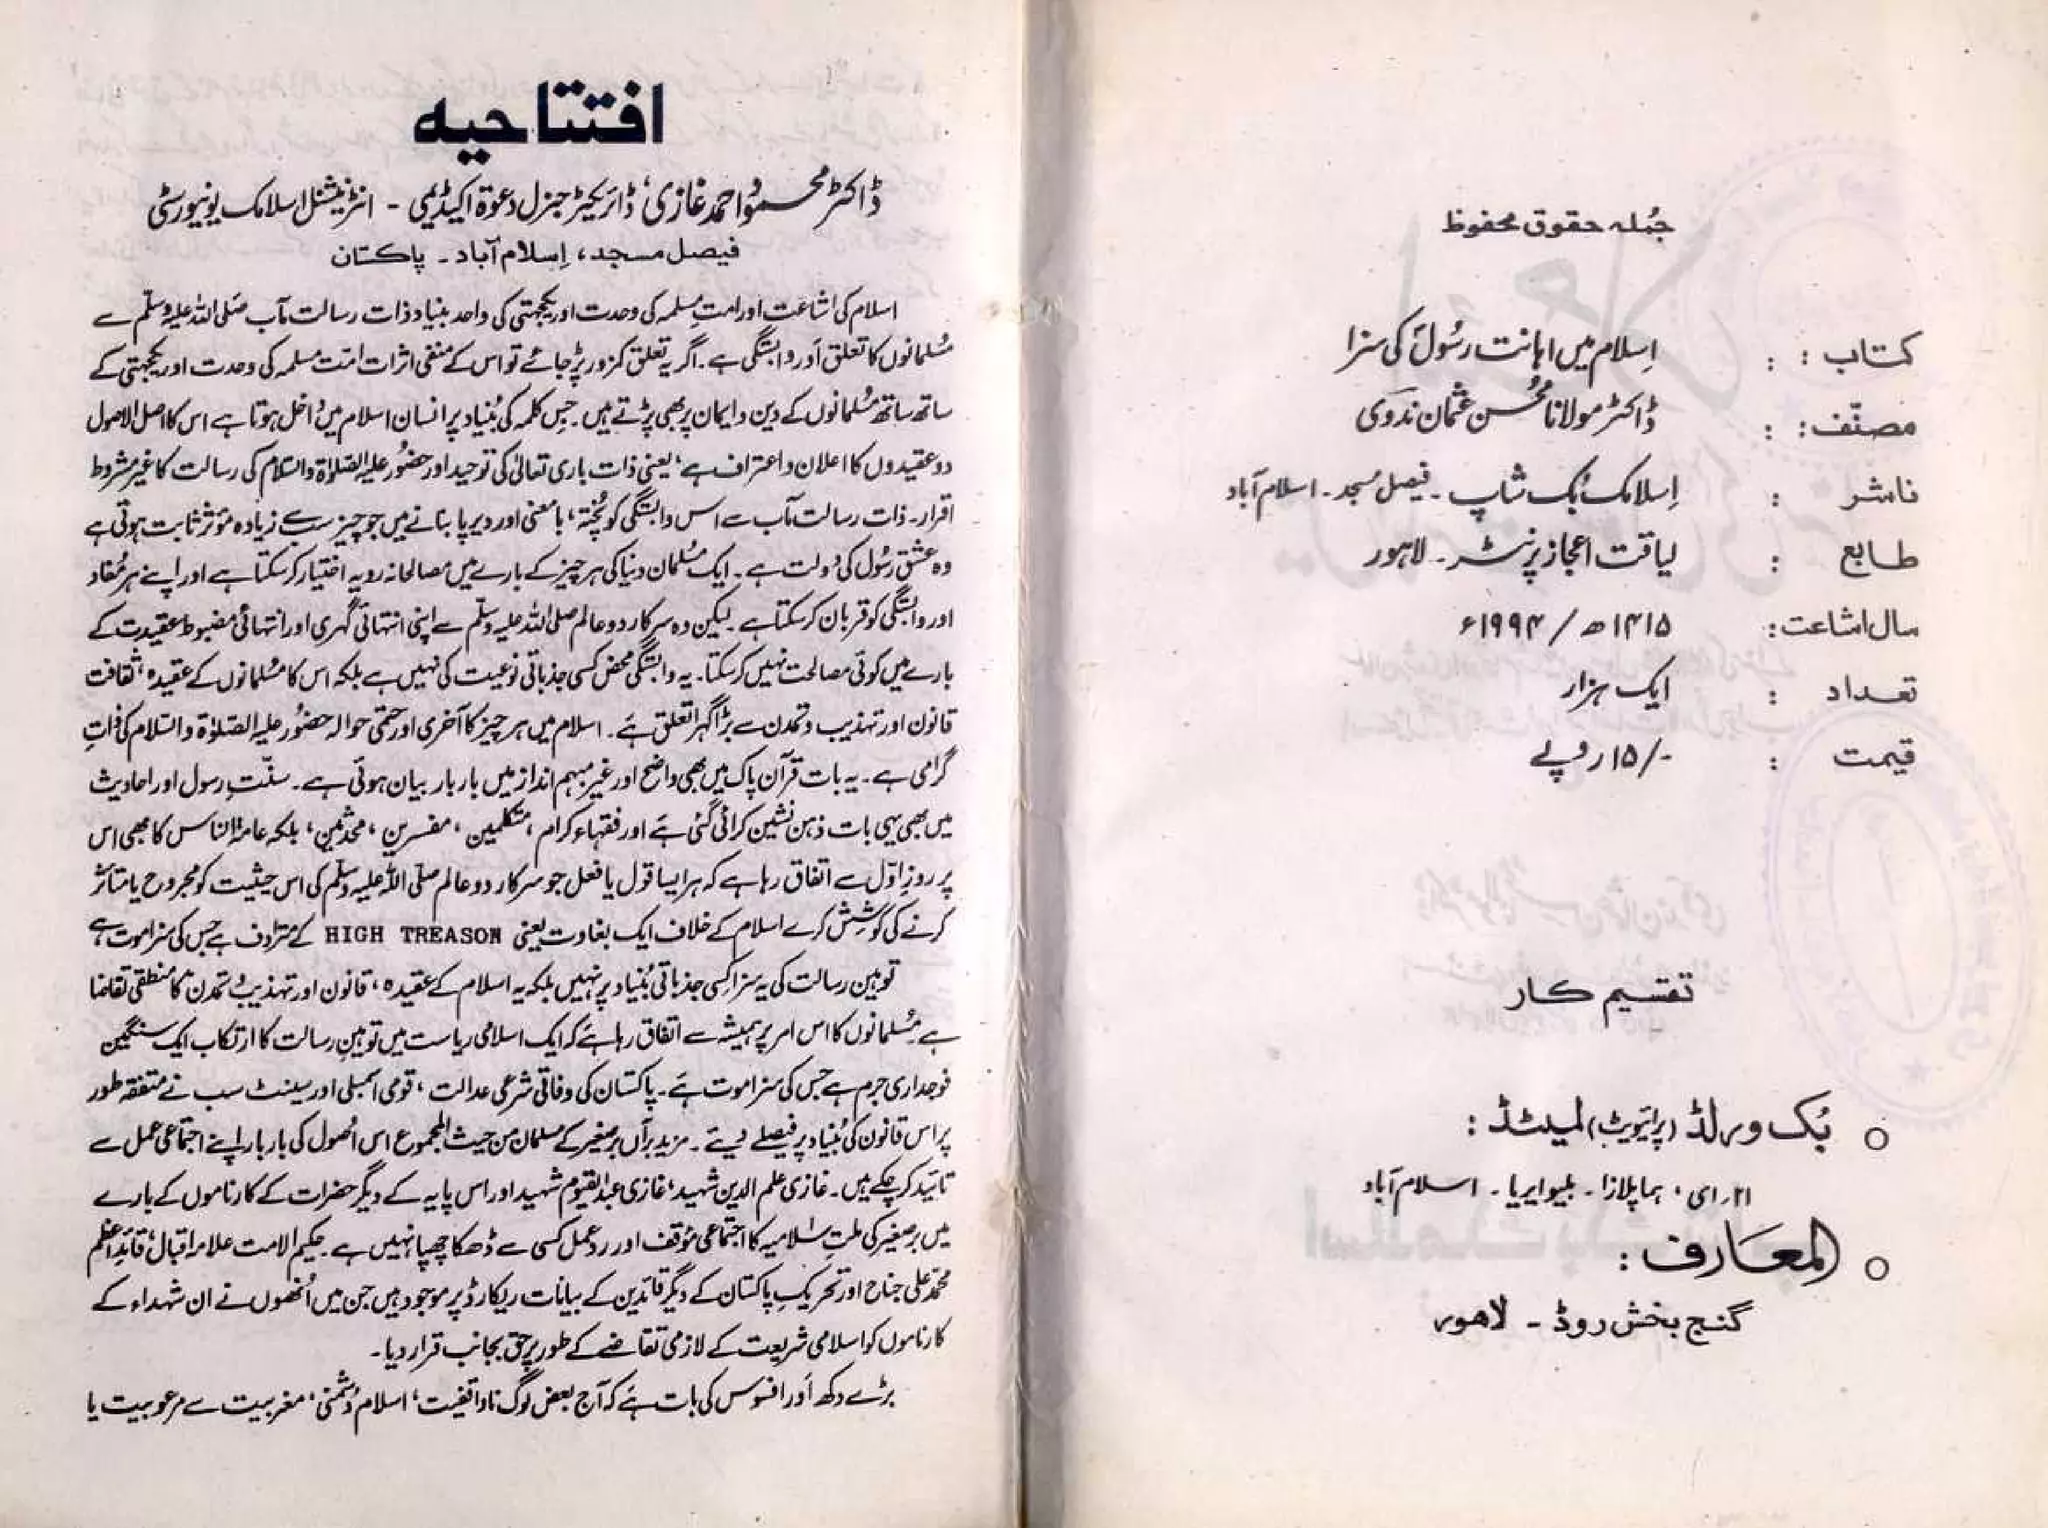 جُملہ حقوق محفوظ
کتاب : : اِسلام میں اہانت رسُولؐ کی سزا
مصنّف : : ڈاکٹر مولانا محُسن عثمان ندَوی
ناشر : اِسلامک بُک شاپ ۔ فیصل مسجد ۔ اسلام آباد
طابع : لیاقت اعجاز پرنٹر ۔ لاہور
سال اشاعت : ۱۴۱۵ھ / ۱۹۹۴ء
تعداد : ایک ہزار
قیمت : ۱۵/- روپے
تقسیم کار
○ بُک ورلڈ (پرائیویٹ) لمیٹڈ :
۱۲ر ای ، ہما پلازا ۔ بلیو ایریا ۔ اسلام آباد
○ المعارف :
گنج بخش روڈ - لاھور
افتتاحیہ
ڈاکٹر محموُد احمد غازی، ڈائریکٹر جنرل دعوۃ اکیڈیمی - انٹرنیشنل اسلامک یونیورسٹی
فیصل مسجد ، اِسلام آباد ۔ پاکستان
اسلام کی اشاعت اور امتِ مسلمہ کی وحدت اور یکجہتی کی واحد بنیاد ذات رسالت مآب صَلی اللہ علیہ وسلّم سے
مُسلمانوں کا تعلق اَور وابستگی ہے ۔ اگر یہ تعلق کمزور پڑ جائے تو اس کے منفی اثرات امّت مسلمہ کی وحدت اور یکجہتی کے
ساتھ ساتھ مُسلمانوں کے دین و ایمان پر بھی پڑتے ہیں ۔ جِس کلمہ کی بُنیاد پر انسان اسلام میں دُاخل ہوتا ہے اس کا اصل الاصول
دو عقیدوں کا اعلان و اعتراف ہے ، یعنی ذات باری تعالیٰ کی توحید اور حضوُر علیہ الصّلوٰۃ والسّلام کی رسالت کا غیر مشروط
اقرار ۔ ذات رسالت مآب سے اس وابستگی کو پُختہ ، بامعنی اور دیرپا بنانے میں جو چیز سب سے زیادہ مؤثر ثابت ہوتی ہے
وہ عشقِ رسُول کی دَولت ہے ۔ ایک مُسلمان دنیا کی ہر چیز کے بارے میں مصالحانہ رویہ اختیار کر سکتا ہے اور اپنے ہر مُفاد
اور وابستگی کو قربان کر سکتا ہے ۔ لیکن وہ سرکار دو عالم صلی اللہ علیہ وسلّم سے اپنی انتہائی گہری اور انتہائی مضبوط عقیدت کے
بارے میں کوئی مصالحت نہیں کر سکتا ۔ یہ وابستگی محض کسی جذباتی نوعیت کی نہیں ہے بلکہ اس کا مُسلمانوں کے عقیدہ ، ثقافت
قانون اور تہذیب و تمدن سے بڑا گہرا تعلق ہے ۔ اسلام میں ہر چیز کا آخری اور حتمی حوالہ حضوُر علیہ الصّلوٰۃ والسّلام کی ذاتِ
گرامی ہے ۔ یہ بات قرآن پاک میں بھی واضح اور غیر مبہم انداز میں بار بار بیان ہوئی ہے ۔ سنّتِ رسول اور احادیث
میں بھی یہی بات ذہن نشین کرائی گئی ہے اور فقہاء کرام ، متکلمین ، مفسرین ، محدثین ، بلکہ عامۃ الناس کا بھی اس
پر روزِ اوّل سے اتفاق رہا ہے کہ ہر ایسا قول یا فعل جو سرکار دو عالم صلّی اللہ علیہ وسلّم کی اس حیثیت کو مجروح یا متاثر
کرنے کی کوشِش کرے اسلام کے خلاف ایک بغاوت یعنی HIGH TREASON کے مترادف ہے جس کی سزا موت ہے
توہینِ رسالت کی یہ سزا کِسی جذباتی بُنیاد پر نہیں بلکہ یہ اسلام کے عقیدہ ، قانون اور تہذیب و تمدن کا منطقی تقاضا
ہے ۔ مُسلمانوں کا اس امر پر ہمیشہ سے اتفاق رہا ہے کہ ایک اسلامی ریاست میں توہینِ رسالت کا ارتکاب ایک سنگین
فوجداری جرم ہے جس کی سزا موت ہے ۔ پاکستان کی وفاقی شرعی عدالت ، قومی اسمبلی اور سینٹ سب نے متفقہ طور
پر اس قانون کی بُنیاد پر فیصلے دیے ۔ مزید برآں برصغیر کے مسلمان من حیث المجموع اس اُصول کی بار بار اپنے اجتماعی عمل سے
تائید کر چکے ہیں ۔ غازی علم الدین شہید ، غازی عبدالقیوم شہید اور اس پایہ کے دیگر حضرات کے کارناموں کے بارے
میں برصغیر کی ملتِ اسلامیہ کا اجتماعی مؤقف اور ردِعمل کسی سے ڈھکا چھپا نہیں ہے ۔ حکیم الامت علامہ اقبال ، قائدِ اعظم
محمّد علی جناح اور تحریکِ پاکستان کے دیگر قائدین کے بیانات ریکارڈ پر موجود ہیں جن میں اُنھوں نے ان شہداء کے
کارناموں کو اسلامی شریعت کے لازمی تقاضے کے طور پر حق بجانب قرار دیا ۔
بڑے دکھ اَور افسوس کی بات ہے کہ آج بعض لوگ ناواقفیت ، اسلام دُشمنی ، مغربیت سے مرعوبیت یا